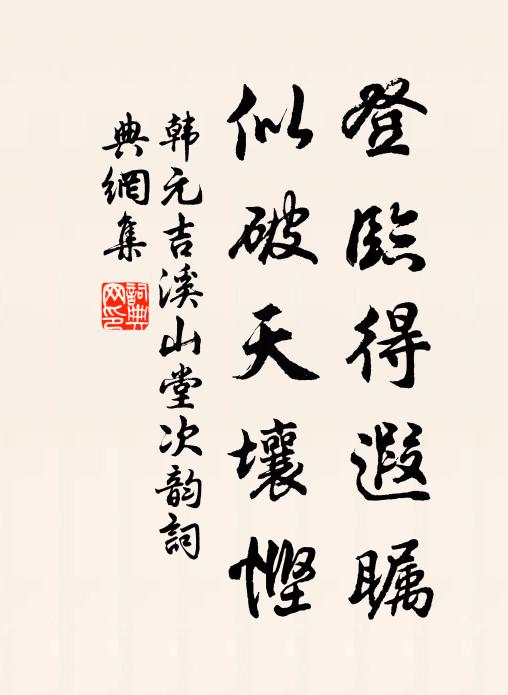 登臨得遐瞩
似破天壤慳
韩元吉溪山堂次韵詞
典網集
詞典网印